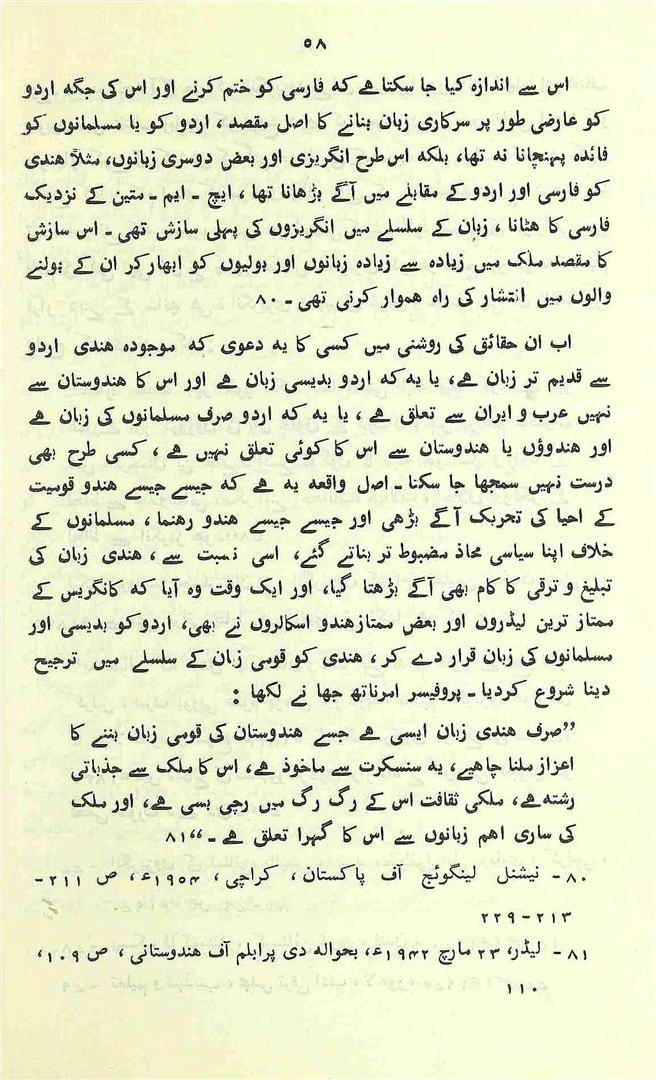 ۵۸
اس سے اندازہ کیا جا سکتا ہے کہ فارسی کو ختم کرنے اور اس کی جگہ اردو
کو عارضی طور پر سرکاری زبان بنانے کا اصل مقصد ، اردو کو یا مسلمانوں کو
فائدہ پہنچانا نہ تھا، بلکہ اس طرح انگریزی اور بعض دوسری زبانوں، مثلاً ہندی
کو فارسی اور اردو کے مقابلے میں آگے بڑھانا تھا ، ایچ ۔ ایم ۔ متین کے نزدیک
فارسی کا ہٹانا ، زبان کے سلسلے میں انگریزوں کی پہلی سازش تھی ۔ اس سازش
کا مقصد ملک میں زیادہ سے زیادہ زبانوں اور بولیوں کو ابھار کر ان کے بولنے
والوں میں انتشار کی راہ ہموار کرنی تھی ۔ ۸۰
اب ان حقائق کی روشنی میں کسی کا یہ دعویٰ کہ موجودہ ہندی اردو
سے قدیم تر زبان ہے، یا یہ کہ اردو بدیسی زبان ہے اور اس کا ہندوستان سے
نہیں عرب و ایران سے تعلق ہے ، یا یہ کہ اردو صرف مسلمانوں کی زبان ہے
اور ہندوؤں یا ہندوستان سے اس کا کوئی تعلق نہیں ہے ، کسی طرح بھی
درست نہیں سمجھا جا سکتا ۔ اصل واقعہ یہ ہے کہ جیسے جیسے ہندو قومیت
کے احیا کی تحریک آگے بڑھی اور جیسے جیسے ہندو رہنما ، مسلمانوں کے
خلاف اپنا سیاسی محاذ مضبوط تر بناتے گئے، اسی نسبت سے ، ہندی زبان کی
تبلیغ و ترقی کا کام بھی آگے بڑھتا گیا، اور ایک وقت وہ آیا کہ کانگریس کے
ممتاز ترین لیڈروں اور بعض ممتاز ہندو اسکالروں نے بھی، اردو کو بدیسی اور
مسلمانوں کی زبان قرار دے کر ، ہندی کو قومی زبان کے سلسلے میں ترجیح
دینا شروع کردیا ۔ پروفیسر امرناتھ جھا نے لکھا :
”صرف ہندی زبان ایسی ہے جسے ہندوستان کی قومی زبان بننے کا
اعزاز ملنا چاہیے، یہ سنسکرت سے ماخوذ ہے، اس کا ملک سے جذباتی
رشتہ ہے، ملکی ثقافت اس کے رگ رگ میں رچی بسی ہے، اور ملک
کی ساری اہم زبانوں سے اس کا گہرا تعلق ہے ۔“ ۸۱
۸۰ ۔ نیشنل لینگوئج آف پاکستان ، کراچی ، ۱۹۵۴ء، ص ۲۱۱ -
۲۱۳ - ۲۲۹
۸۱ ۔ لیڈر، ۲۳ مارچ ۱۹۴۲ء، بحوالہ دی پرابلم آف ہندوستانی ، ص ۱۰۹،
۱۱۰